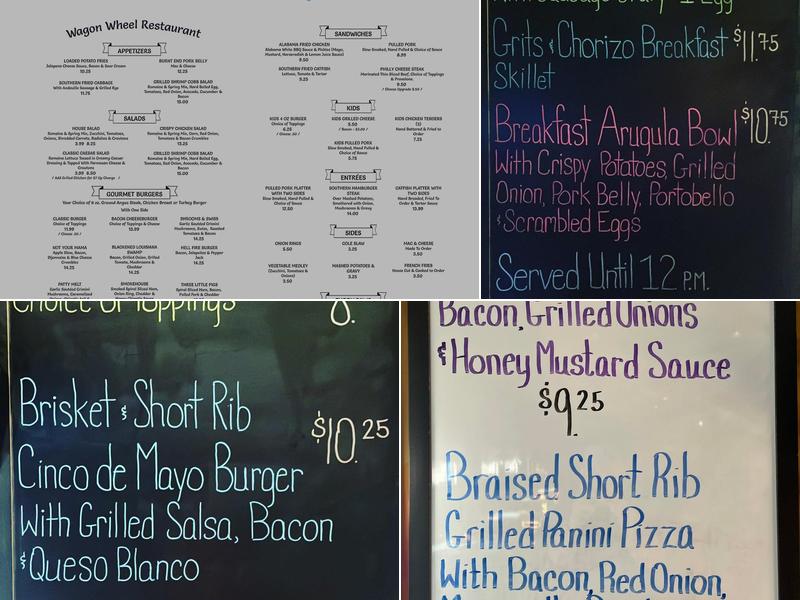 Wagon Wheel Restaurant
APPETIZERS
LOADED POTATO FRIES
Jalapeno Cheese Sauce, Bacon & Sour Cream
10.25
BURNT END PORK BELLY
Mac & Cheese
12.25
SOUTHERN FRIED CABBAGE
With Andouille Sausage & Grilled Rye
11.75
GRILLED SHRIMP COBB SALAD
Romaine & Spring Mix, Hard Boiled Egg,
Tomatoes, Red Onion, Avocado, Cucumber &
Bacon
15.00
SALADS
HOUSE SALAD
Romaine & Spring Mix, Zucchini, Tomatoes,
Onions, Shredded Carrots, Radishes & Croutons
3.99 8.25
CRISPY CHICKEN SALAD
Romaine & Spring Mix, Corn, Red Onion,
Tomatoes & Bacon Crumbles
13.25
CLASSIC CAESAR SALAD
Romaine Lettuce Tossed in Creamy Caesar
Dressing & Topped with Parmesan Cheese &
Croutons
3.99 8.50
GRILLED SHRIMP COBB SALAD
Romaine & Spring Mix, Hard Boiled Egg,
Tomatoes, Red Onion, Avocado, Cucumber &
Bacon
15.00
GOURMET BURGERS
Your Choice of 8 oz. Ground Angus Steak, Chicken Breast or Turkey Burger
With One Side
CLASSIC BURGER
Choice of Toppings
11.99
BACON CHEESEBURGER
Choice of Toppings & Cheese
13.99
SHROOMS & SWISS
Garlic Sautéed Crimini
Mushrooms, Swiss, Roasted
Tomatoes & Bacon
14.25
NOT YOUR MAMA
Apple Slices, Bacon,
Dijonnaise & Blue Cheese
Crumbles
14.25
BLACKENED LOUISIANA
SWAMP
Bacon, Grilled Onion, Grilled
Tomato, Mushrooms &
Cheddar
14.25
HELL FIRE BURGER
Bacon, Jalapeños & Pepper
Jack
14.25
PATTY MELT
Garlic Sautéed Crimini
Mushrooms, Caramelized
SMOKEHOUSE
Smoked Spiral Sliced Ham,
Onion Ring, Cheddar &
THREE LITTLE PIGS
Spiral Sliced Ham, Bacon,
Pulled Pork & Cheddar
SANDWICHES
ALABAMA FRIED CHICKEN
Alabama White BBQ Sauce & Pickles (Mayo,
Mustard, Horseradish & Lemon Juice Sauce)
9.50
PULLED PORK
Slow Smoked, Hand Pulled & Choice of Sauce
8.95
SOUTHERN FRIED CATFISH
Lettuce, Tomato & Tarter
9.25
PHILLY CHEESE STEAK
Marinated Thin Sliced Beef, Choice of Toppings
& Provolone.
9.50
KIDS
KIDS 4 OZ BURGER
Choice of Toppings
6.25
KIDS GRILLED CHEESE
5.50
KIDS CHICKEN TENDERS
(3)
Hand Battered & Fried to
Order
7.25
KIDS PULLED PORK
Slow Smoked, Hand Pulled &
Choice of Sauce
5.75
ENTRÉES
PULLED PORK PLATTER
WITH TWO SIDES
Slow Smoked, Hand Pulled &
Choice of Sauce
12.50
SOUTHERN HAMBURGER
STEAK
Over Mashed Potatoes,
Smothered with Onion,
Mushrooms & Gravy
14.00
CATFISH PLATTER WITH
TWO SIDES
Hand Breaded, Fried To
Order & Tarter Sauce
13.99
SIDES
ONION RINGS
5.50
COLE SLAW
3.25
MAC & CHEESE
Made To Order
3.50
VEGETABLE MEDLEY
(Zucchini, Tomatoes &
Onions)
3.50
MASHED POTATOES &
GRAVY
3.25
FRENCH FRIES
House Cut & Cooked to Order
3.50
Grits & Chorizo Breakfast $11.75
Skillet
Breakfast Arugula Bowl $10.75
With Crispy Potatoes, Grilled
Onion, Pork Belly, Portobello
& Scrambled Eggs
Served Until 12 P.M.
Choice of Toppings
Brisket & Short Rib
$10.25
Cinco de Mayo Burger
With Grilled Salsa, Bacon
& Queso Blanco
Bacon, Grilled Onions
& Honey Mustard Sauce
$9.25
Braised Short Rib
Grilled Panini Pizza
With Bacon, Red Onion,